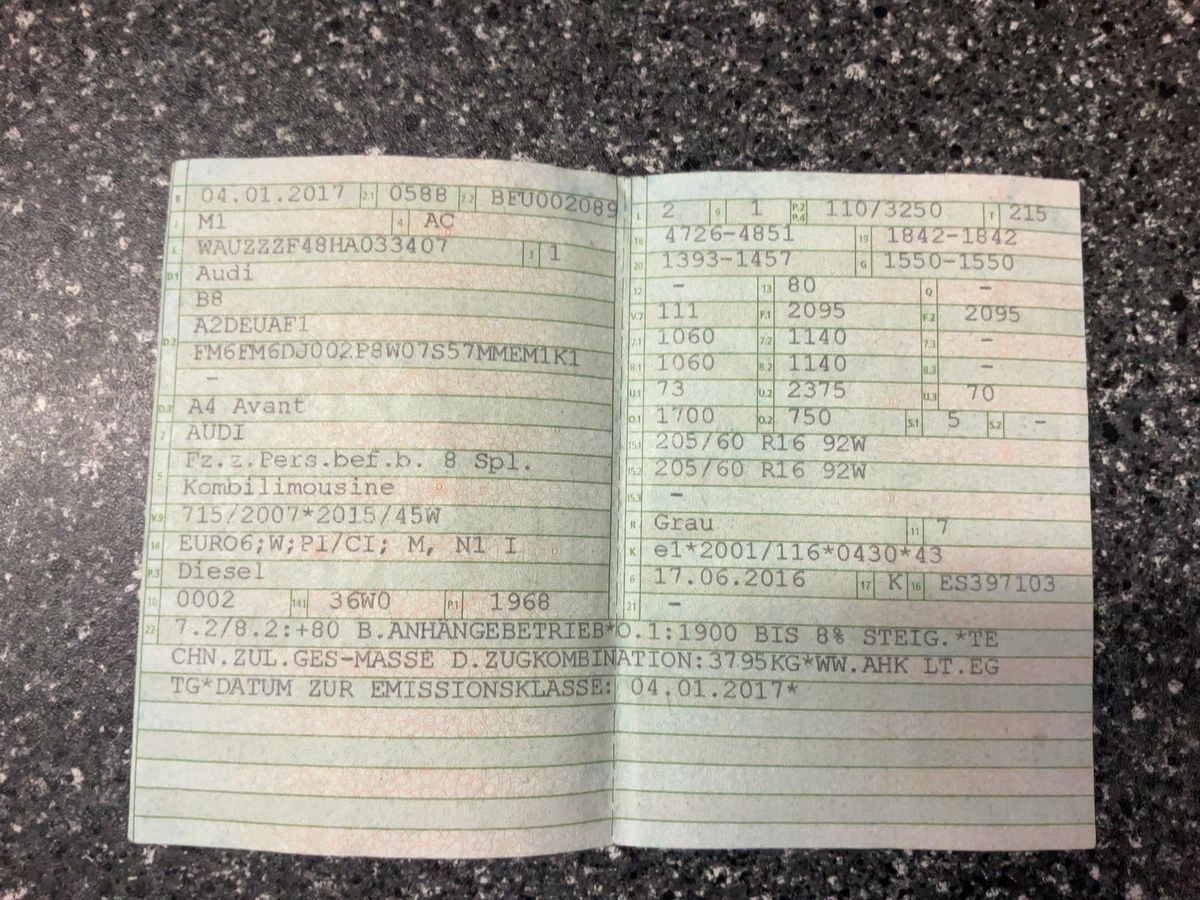 B 04.01.2017 2.1 0588 2.2 BFU002089
J M1 4 AC
E WAUZZZF48HA033407 3 1
D.1 Audi
B8
D.2 A2DEUAF1
FM6FM6DJ002P8W07S57MMEM1K1
–
D.3 A4 Avant
2 AUDI
5 Fz.z.Pers.bef.b. 8 Spl.
Kombilimousine
V.9 715/2007*2015/45W
14 EURO6;W;PI/CI; M, N1 I
P.3 Diesel
10 0002 14.1 36W0 P.1 1968
L 2 9 1 P.2 P.4 110/3250 T 215
18 4726-4851 19 1842-1842
20 1393-1457 G 1550-1550
12 – 13 80 Q –
V.7 111 F.1 2095 F.2 2095
7.1 1060 7.2 1140 7.3 –
8.1 1060 8.2 1140 8.3 –
U.1 73 U.2 2375 U.3 70
O.1 1700 O.2 750 S.1 5 S.2 –
15.1 205/60 R16 92W
15.2 205/60 R16 92W
15.3 –
R Grau 11 7
K e1*2001/116*0430*43
6 17.06.2016 17 K 16 ES397103
21 –
22 7.2/8.2:+80 B.ANHÄNGEBETRIEB*O.1:1900 BIS 8% STEIG.*TE
CHN.ZUL.GES-MASSE D.ZUGKOMBINATION:3795KG*WW.AHK LT.EG
TG*DATUM ZUR EMISSIONSKLASSE: 04.01.2017*